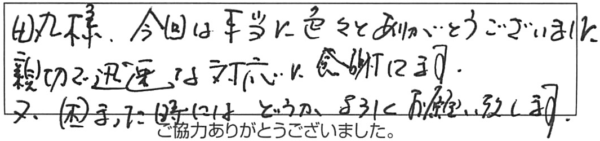 田丸様、今回は本当に色々とありがとうございました
親切で迅速な対応に感謝します。
又、困まった時にはどうか、よろしくお願い致します。
ご協力ありがとうございました。